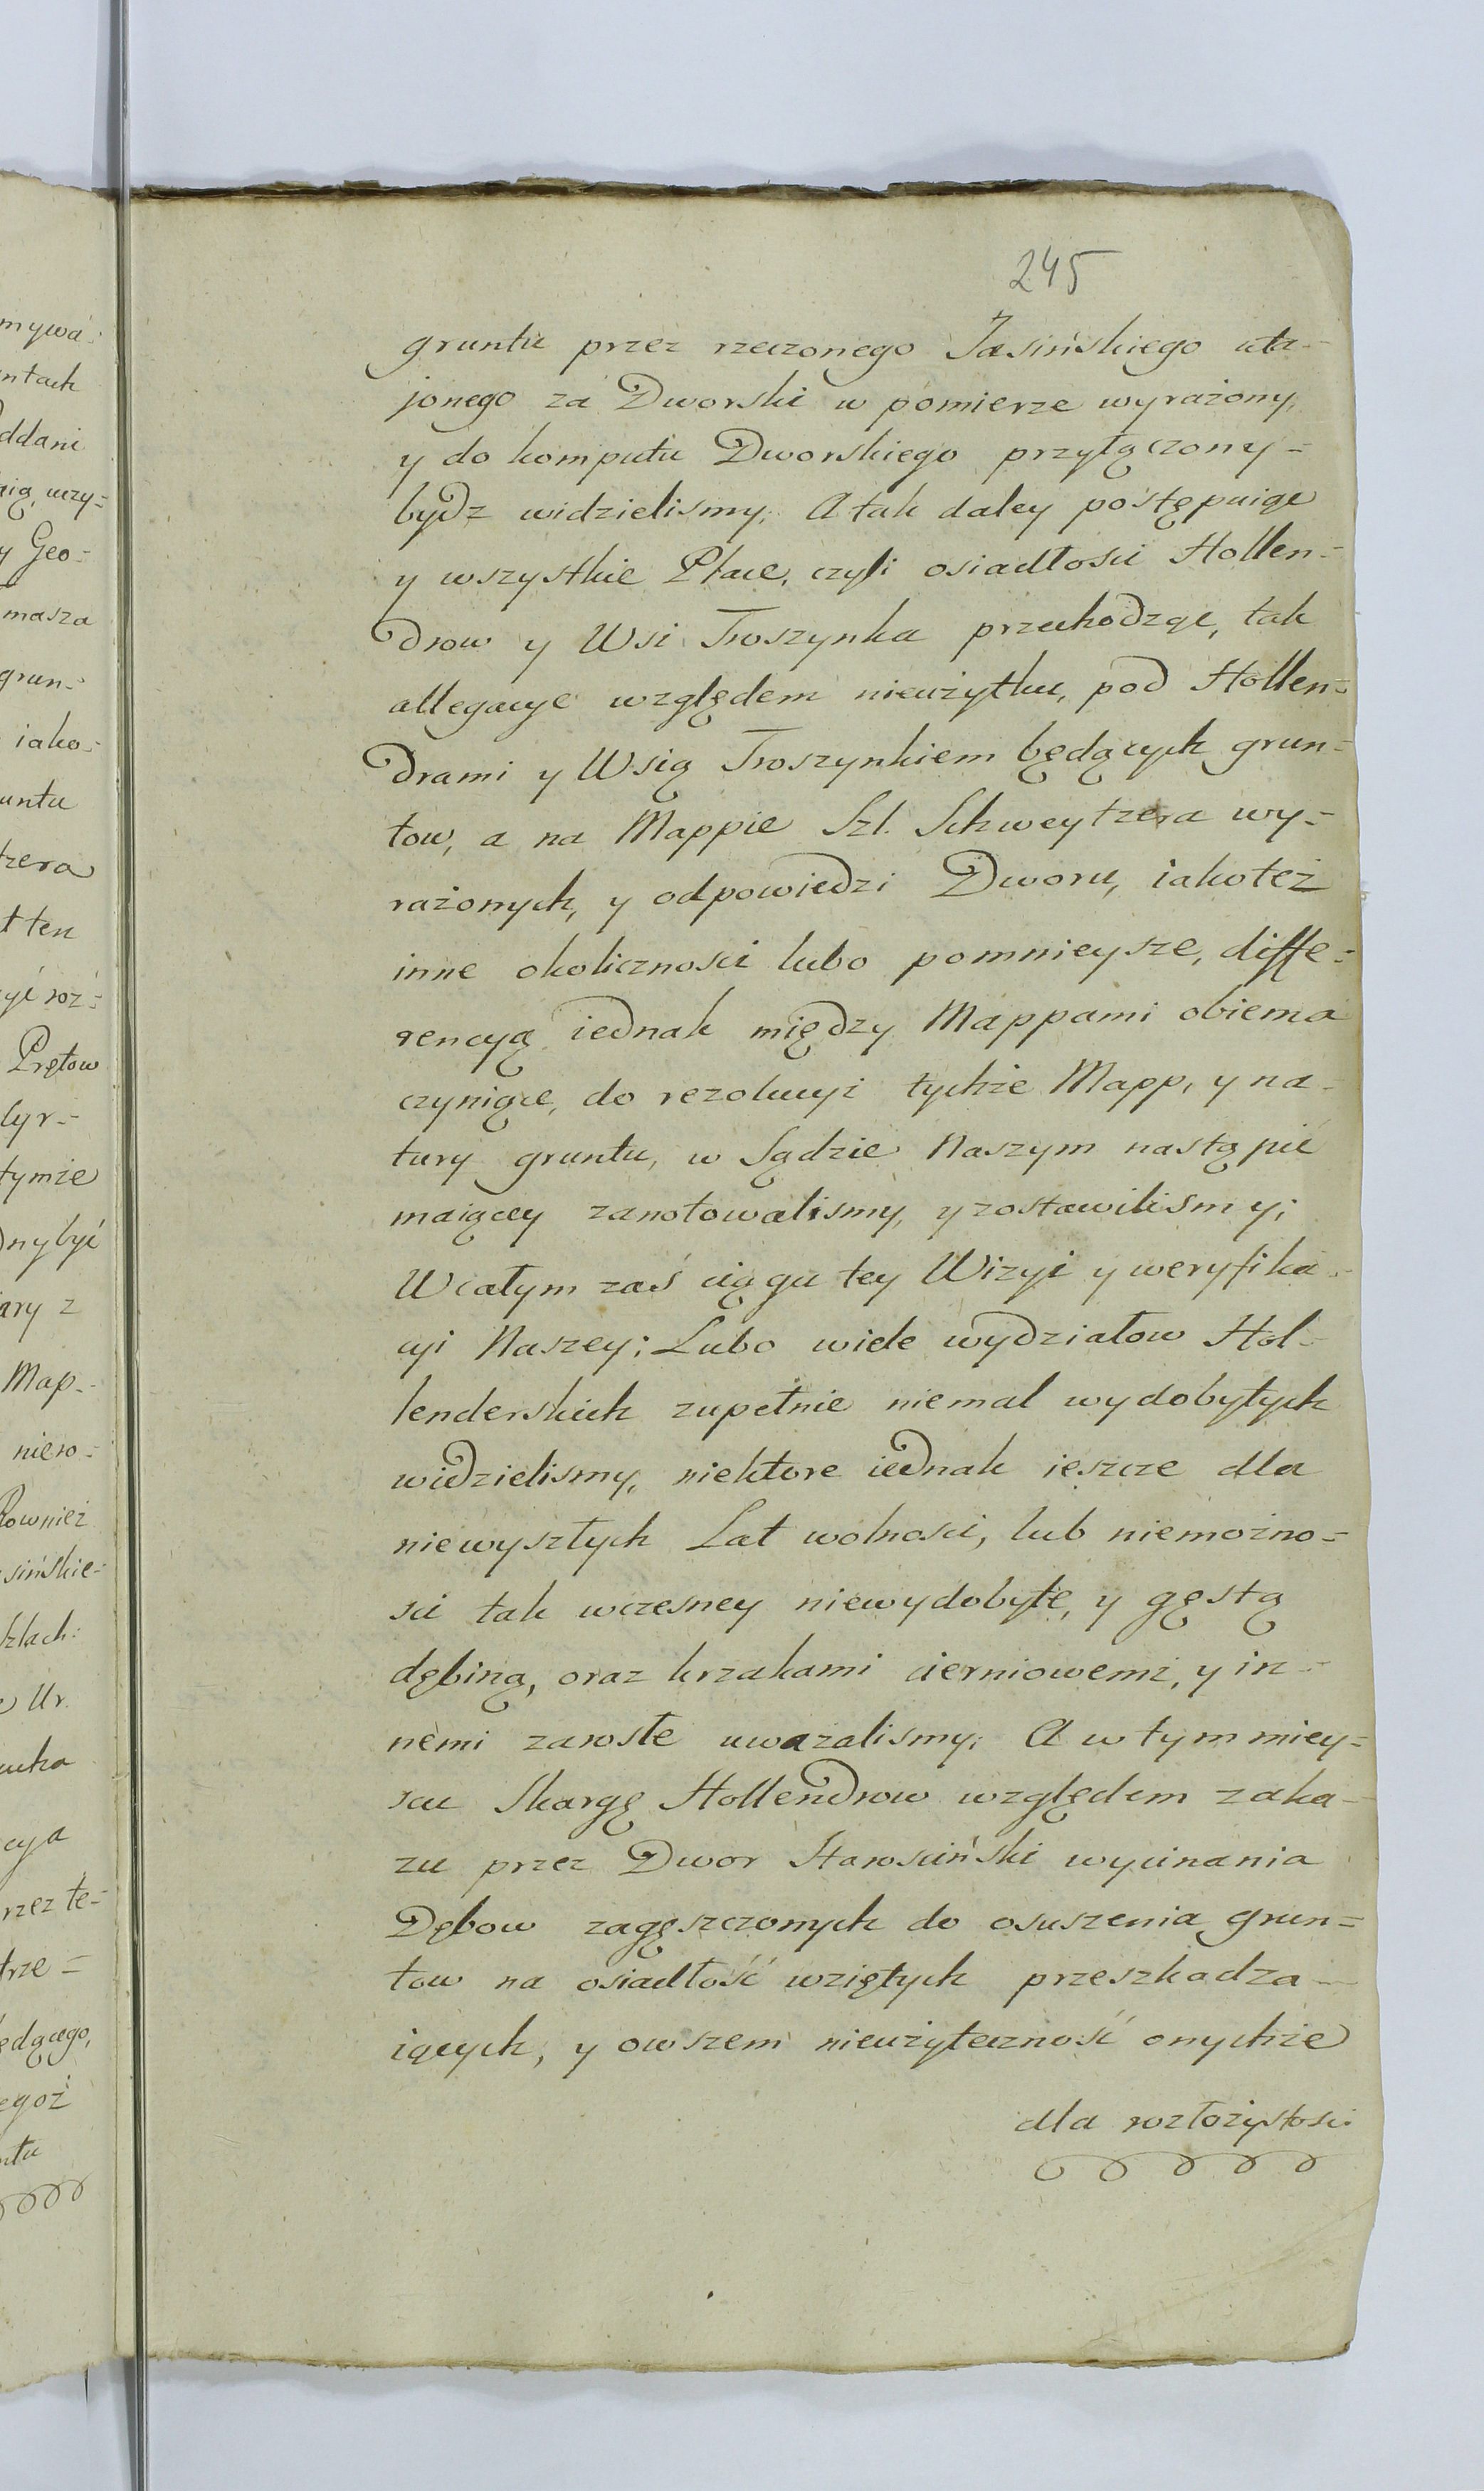 245
gruntu przez rzeczonego Jasińskiego uta-
jonego za Dworski w pomierze wyrażony,
y do komputu Dworskiego przyłączony-
bydz widzielismy; A tak daley postępuiąc
y wszystkie Place, czyli osiadłosci Hollen-
drow y Wsi Troszynka przechodząc, tak
allegacye względem nieużytku, pod Hollen-
drami y Wsią Troszynkiem będących grun-
tow, a na Mappie Szl. Schweytzera wy-
rażonych, y odpowiedzi Dworu, iakoteż
inne okolicznosci lubo pomnieysze, diffe-
rencyą iednak między Mappami obiema
czyniące, do rezolucyi tychże Mapp, y na-
tury gruntu, w Sądzie Naszym nastąpić
maiącey zanotowalismy, y zostawilismy;
W całym zaś ciągu tey Wizyi y weryfika-
cyi Naszey; Lubo wiele wydziałow Hol-
lenderskich zupełnie niemal wydobytych
widzielismy, niektore iednak ieszcze dla
niewyszłych Lat wolnosci, lub niemożno-
sci tak wczesney niewydobyte, y gęstą
dębiną, oraz krzakami cierniowemi, y in-
nemi zarosłe uważalismy; A w tym miey-
scu Skargę Hollendrow względem zaka-
zu przez Dwor Starosciński wycinania
Dębow zagęszczonych do osuszenia grun-
tow na osiadłość wziętych przeszkadza-
iących, y owszem nieużyteczność onychże
dla rozłożystosci
mywa-
ntach
ddani
nią, uczy-
y Geo-
masza
grun-
iako-
untu
tzera
t ten
yć roz-
Prętow
tymże
dny być
ary z
Map-
niero-
Rownież
sińskie-
Szlach:
Ur.
cya
rzez te-
trze-
będącego,
egoż
ntu